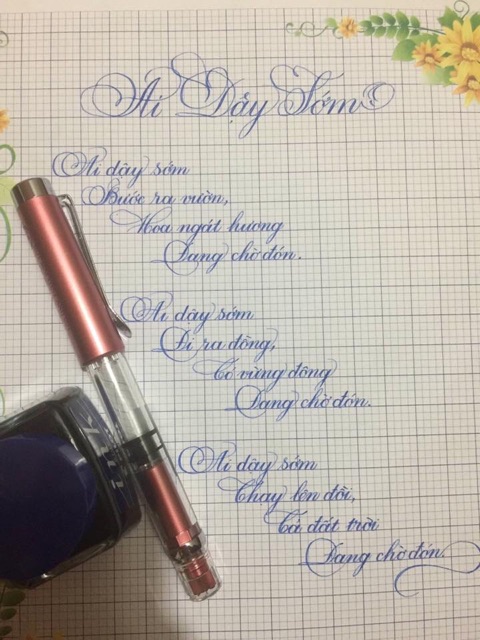 Ai Dậy Sớm
Ai dậy sớm
Bước ra vườn,
Hoa ngát hương
Đang chờ đón.
Ai dậy sớm
Đi ra đồng,
Có vừng đông
Đang chờ đón.
Ai dậy sớm
Chạy lên đồi,
Cả đất trời
Đang chờ đón.